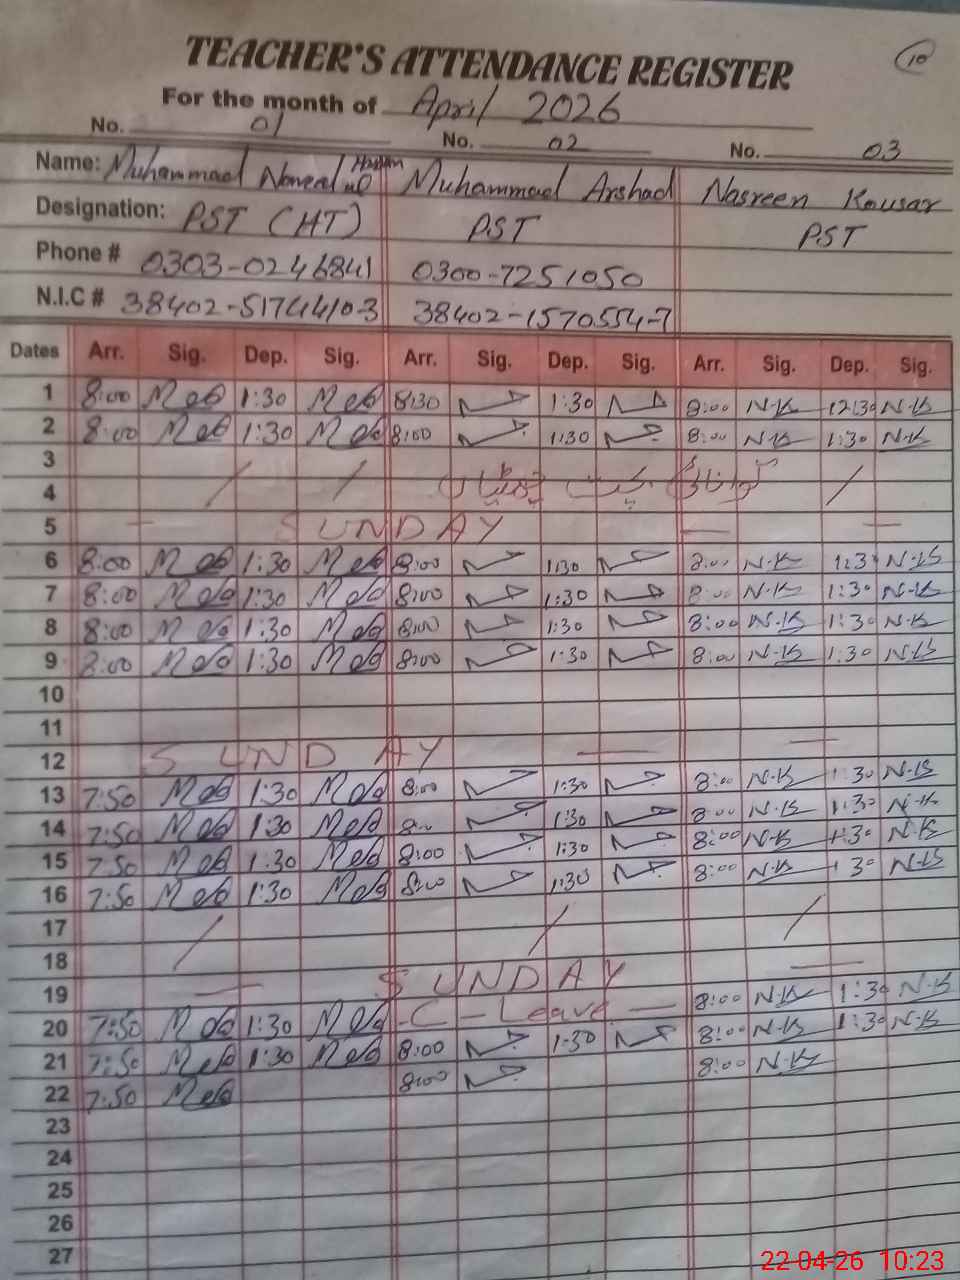 10
TEACHER'S ATTENDANCE REGISTER
For the month of April 2026
No. 01 No. 02 No. 03
Name: Muhammad Hassan Muhammad Arshad Nasreen Kousar
Designation: PST (HT) PST PST
Phone # 0303-0246841 0300-7251050
N.I.C # 38402-5174410-3 38402-1570554-7
Dates Arr. Sig. Dep. Sig. Arr. Sig. Dep. Sig. Arr. Sig. Dep. Sig.
1 8:00 1:30 8:30 1:30 8:00 N-K 12:30 N-K
2 8:00 1:30 8:00 1:30 8:00 N-K 1:30 N-K
3
4
5 SUNDAY
6 8:00 1:30 8:00 1:30 8:00 N-K 1:3 N-K
7 8:00 1:30 8:00 1:30 8:00 N-K 1:30 N-K
8 8:00 1:30 8:00 1:30 8:00 N-K 1:30 N-K
9 8:00 1:30 8:00 1:30 8:00 N-K 1:30 N-K
10
11
12 SUNDAY
13 7:50 1:30 8:00 1:30 8:00 N-K 1:30 N-K
14 7:50 1:30 8:00 1:30 8:00 N-K 1:30 N-K
15 7:50 1:30 8:00 1:30 8:00 N-K 1:30 N-K
16 7:50 1:30 8:00 1:30 8:00 N-K 1:30 N-K
17
18
19 SUNDAY
20 7:50 1:30 C-Leave 8:00 N-K 1:30 N-K
21 7:50 1:30 8:00 1:30 8:00 N-K 1:30 N-K
22 7:50 8:00 8:00 N-K
23
24
25
26
27
22-04-26 10:23